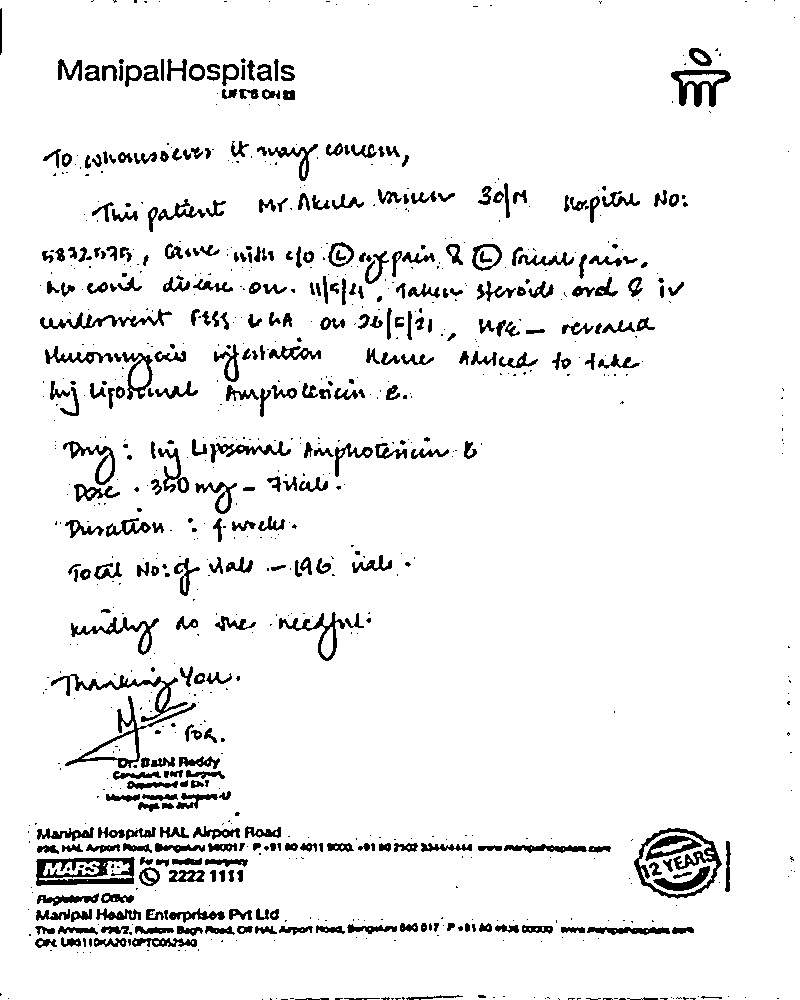 ManipalHospitals
LIFE'S ON
To whomsoever it may concern,
This patient Mr. Akula 30/M Hospital No:
came with c/o (L) eye pain & (L) facial pain.
covid disease on. Taken steroids oral & iv
underwent FESS on HPE – revealed
Mucormycosis infestation Hence Adviced to take
Inj Liposomal Amphotericin B.
Drug : Inj Liposomal Amphotericin B
Dose . 350 mg – 7 vials .
Duration : 4 weeks .
Total No: of vials – 196 vials .
kindly do the needful.
Thanking You.
For.
Dr. Bathi Reddy
Consultant, ENT Surgeon,
Department of ENT
Manipal Hospital HAL Airport Road
#98, HAL Airport Road, Bengaluru 560017 P +91 80 4011 9000 www.manipalhospitals.com
MARS For any medical emergency
2222 1111
12 YEARS
Registered Office
Manipal Health Enterprises Pvt Ltd
The Annexe, #98/2, Rustom Bagh Road, Off HAL Airport Road, Bengaluru 560 017 www.manipalhospitals.com